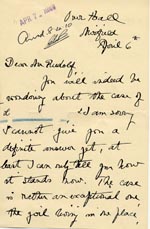 APR 7
April 6th
Dear Mr Rudolf
You will indeed be
wondering about the case of
I am sorry
I cannot give you a
definite answer yet, at
best I can only tell you how
it stands now. The case
is rather an exceptional one
the girl being in one place,